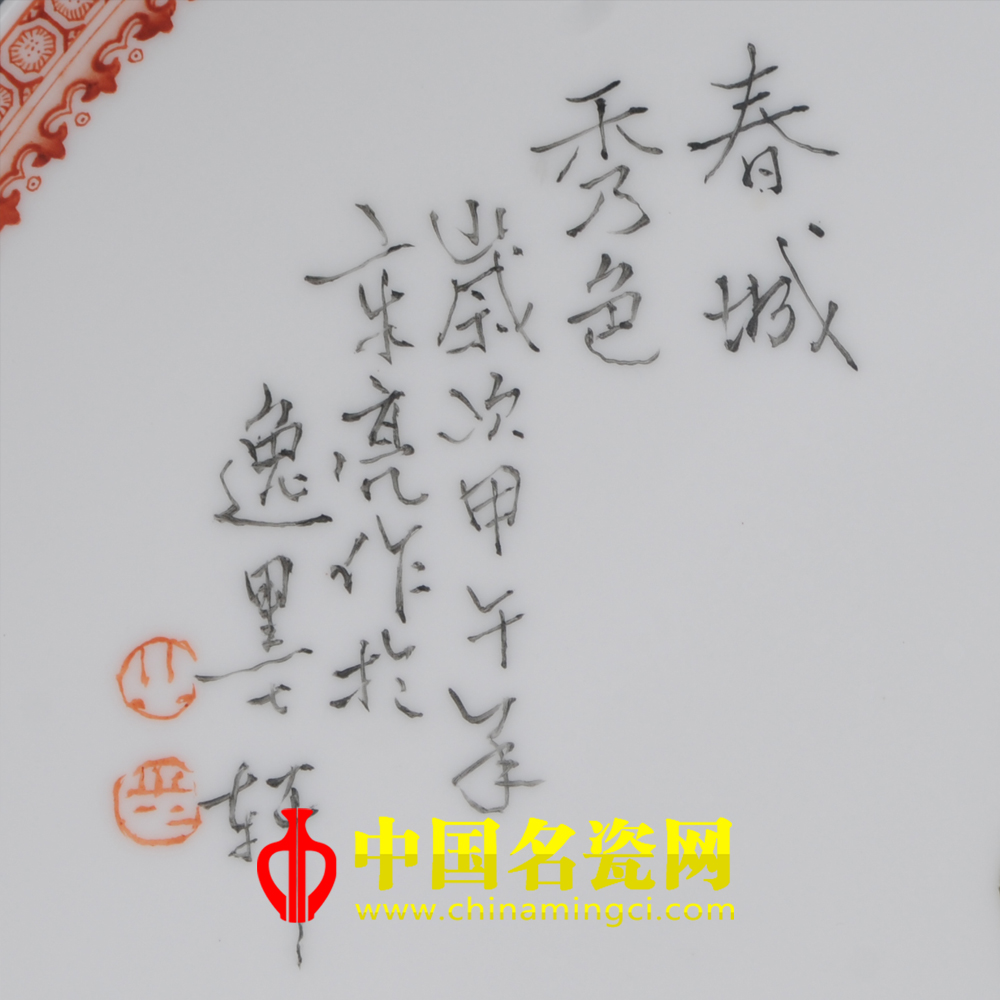 春城
秀色
歲次甲午年
京亮作於
逸墨軒
中国名瓷网
www.chinamingci.com